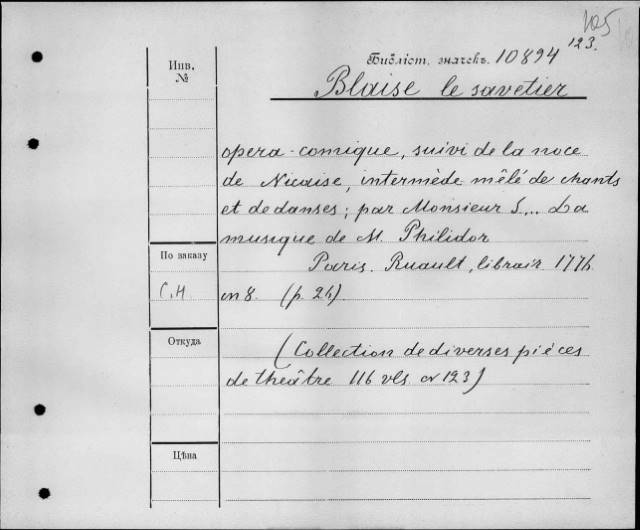 105
Библіот. значекъ. 10894
123.
Инв.
№
Blaise le savetier
opera-comique, suivi de la noce
de Nicaise, intermède mêlé de chants
et de danses; par Monsieur S... La
musique de M. Philidor
По заказу
Paris. Ruault, librair. 177
С.Н
in 8. (p. 24).
Откуда
(Collection de diverses pièces
de theâtre 116 vls. 123)
Цѣна